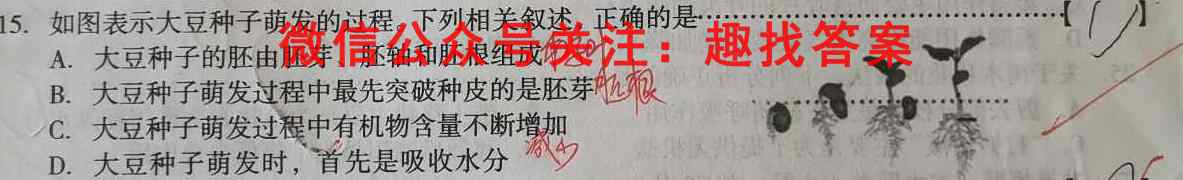 15. 如图表示大豆种子萌发的过程，下列相关叙述，正确的是………………………【 D 】
微信公众号关注：趣找答案
A. 大豆种子的胚由胚芽、胚轴和胚根组成
B. 大豆种子萌发过程中最先突破种皮的是胚芽 胚根
C. 大豆种子萌发过程中有机物含量不断增加
减少
D. 大豆种子萌发时，首先是吸收水分